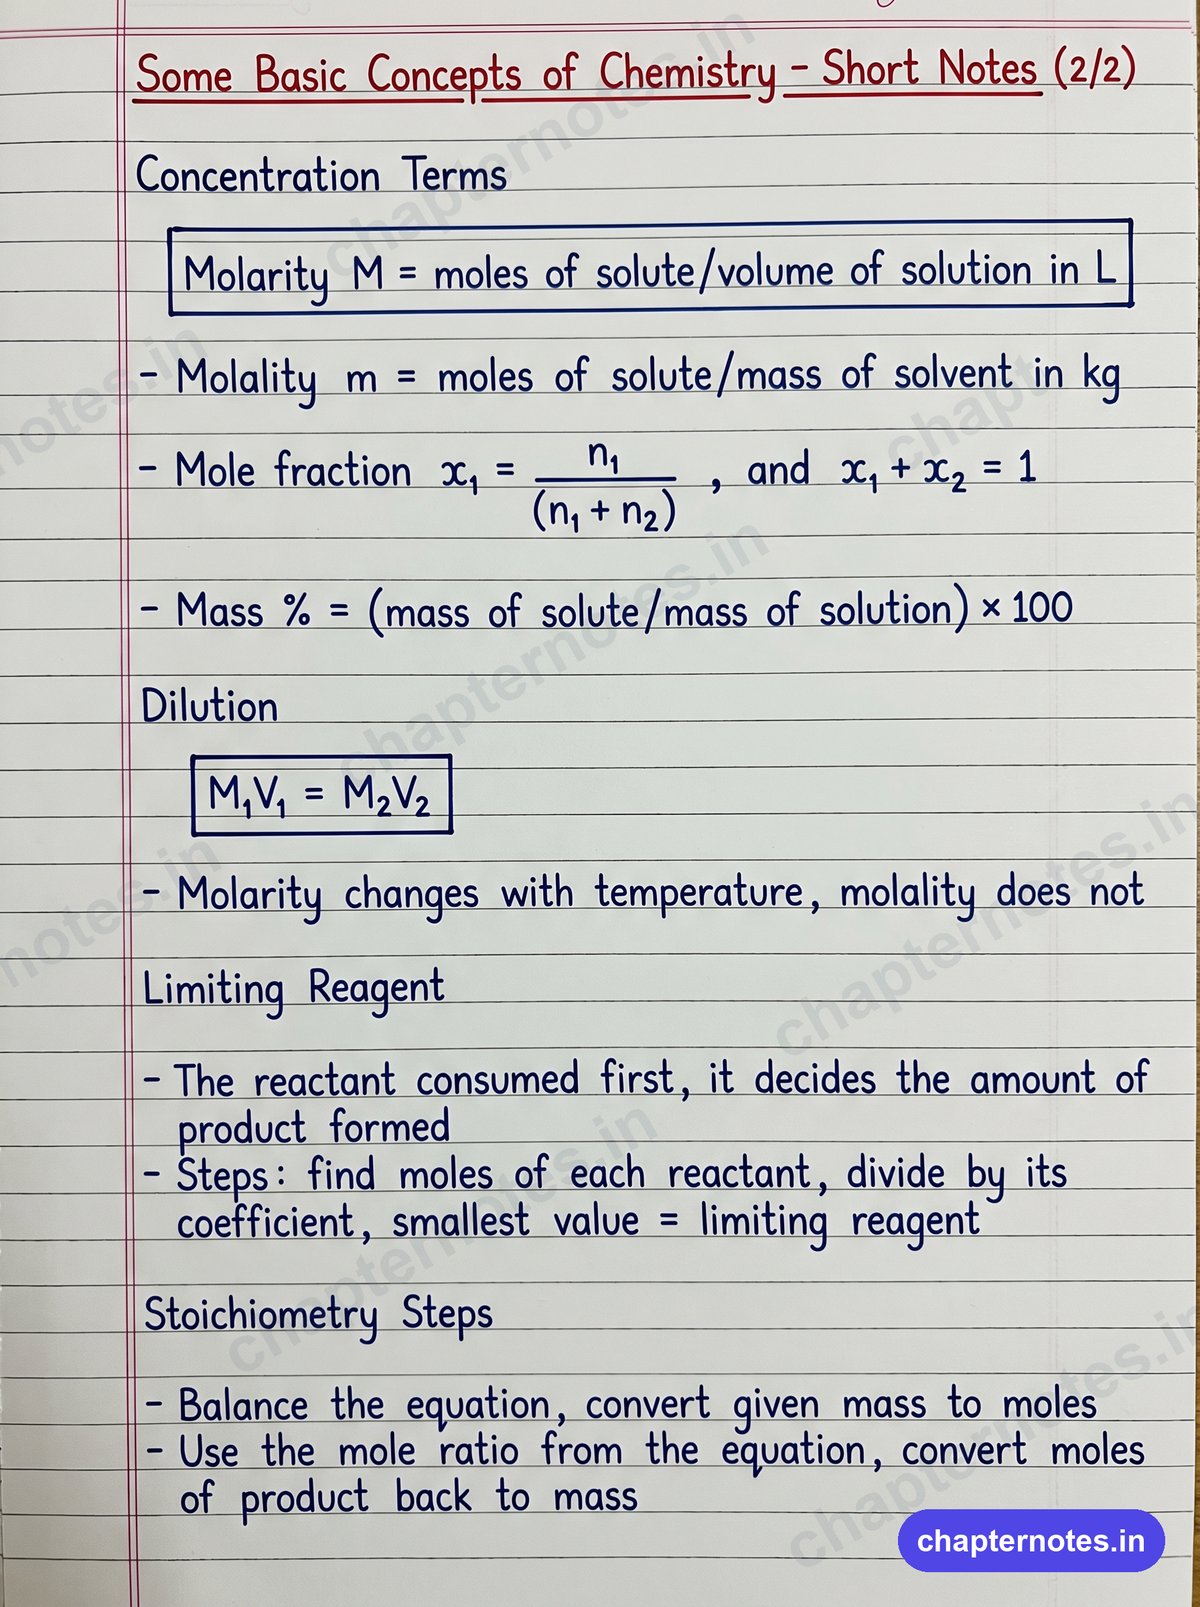 Some Basic Concepts of Chemistry - Short Notes (2/2)
Concentration Terms
Molarity M = moles of solute/volume of solution in L
- Molality m = moles of solute/mass of solvent in kg
- Mole fraction x₁ = n₁/(n₁ + n₂) , and x₁ + x₂ = 1
- Mass % = (mass of solute/mass of solution) × 100
Dilution
M₁V₁ = M₂V₂
- Molarity changes with temperature, molality does not
Limiting Reagent
- The reactant consumed first, it decides the amount of
product formed
- Steps: find moles of each reactant, divide by its
coefficient, smallest value = limiting reagent
Stoichiometry Steps
- Balance the equation, convert given mass to moles
- Use the mole ratio from the equation, convert moles
of product back to mass
chapternotes.in